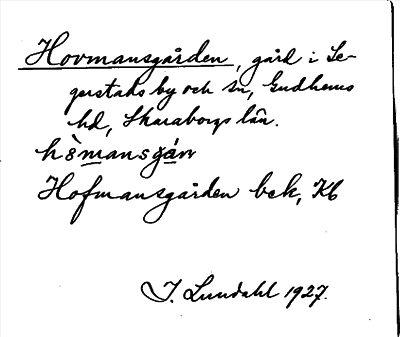 Hovmansgården, gård i Se-
gerstads by och sn, Gudhems
hd, Skaraborgs län.
Hofmansgården bek, Kb
I. Lundahl 1927.